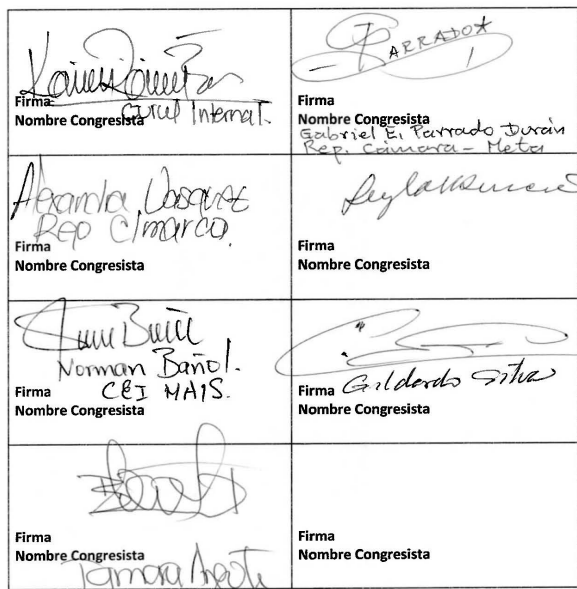 Curul Internal.
Firma
Nombre Congresista
PARRADO
Firma
Nombre Congresista
Gabriel E. Parrado Durán
Rep. Cámara - Meta
Alexandra Vasquez
Rep C/marca.
Firma
Nombre Congresista
Firma
Nombre Congresista
Norman Bañol.
Firma CEI MAIS.
Nombre Congresista
Firma Gildardo Silva
Nombre Congresista
Firma
Nombre Congresista
Tamara Argote
Firma
Nombre Congresista